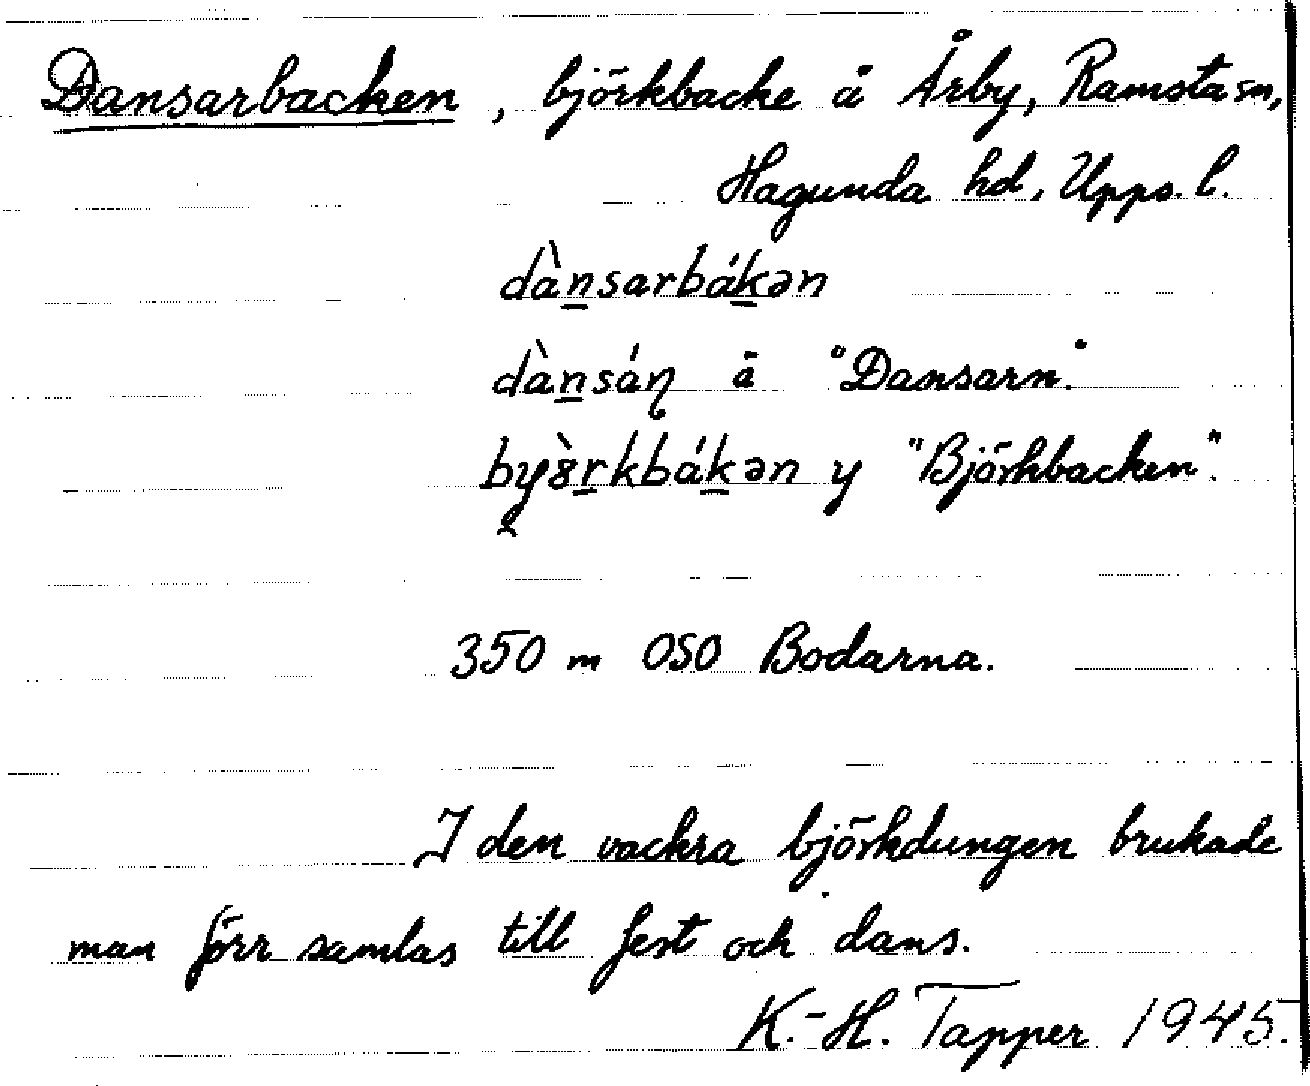 Dansarbacken, björkbacke å Årby, Ramsta sn,
Hagunda hd, Upps. l.
dànsarbákən
dànsáņ ä "Dansarn".
byɞ̀rkbákən y "Björkbacken".
350 m OSO Bodarna.
I den vackra björkdungen brukade
man förr samlas till fest och dans.
K.-H. Tapper 1945.